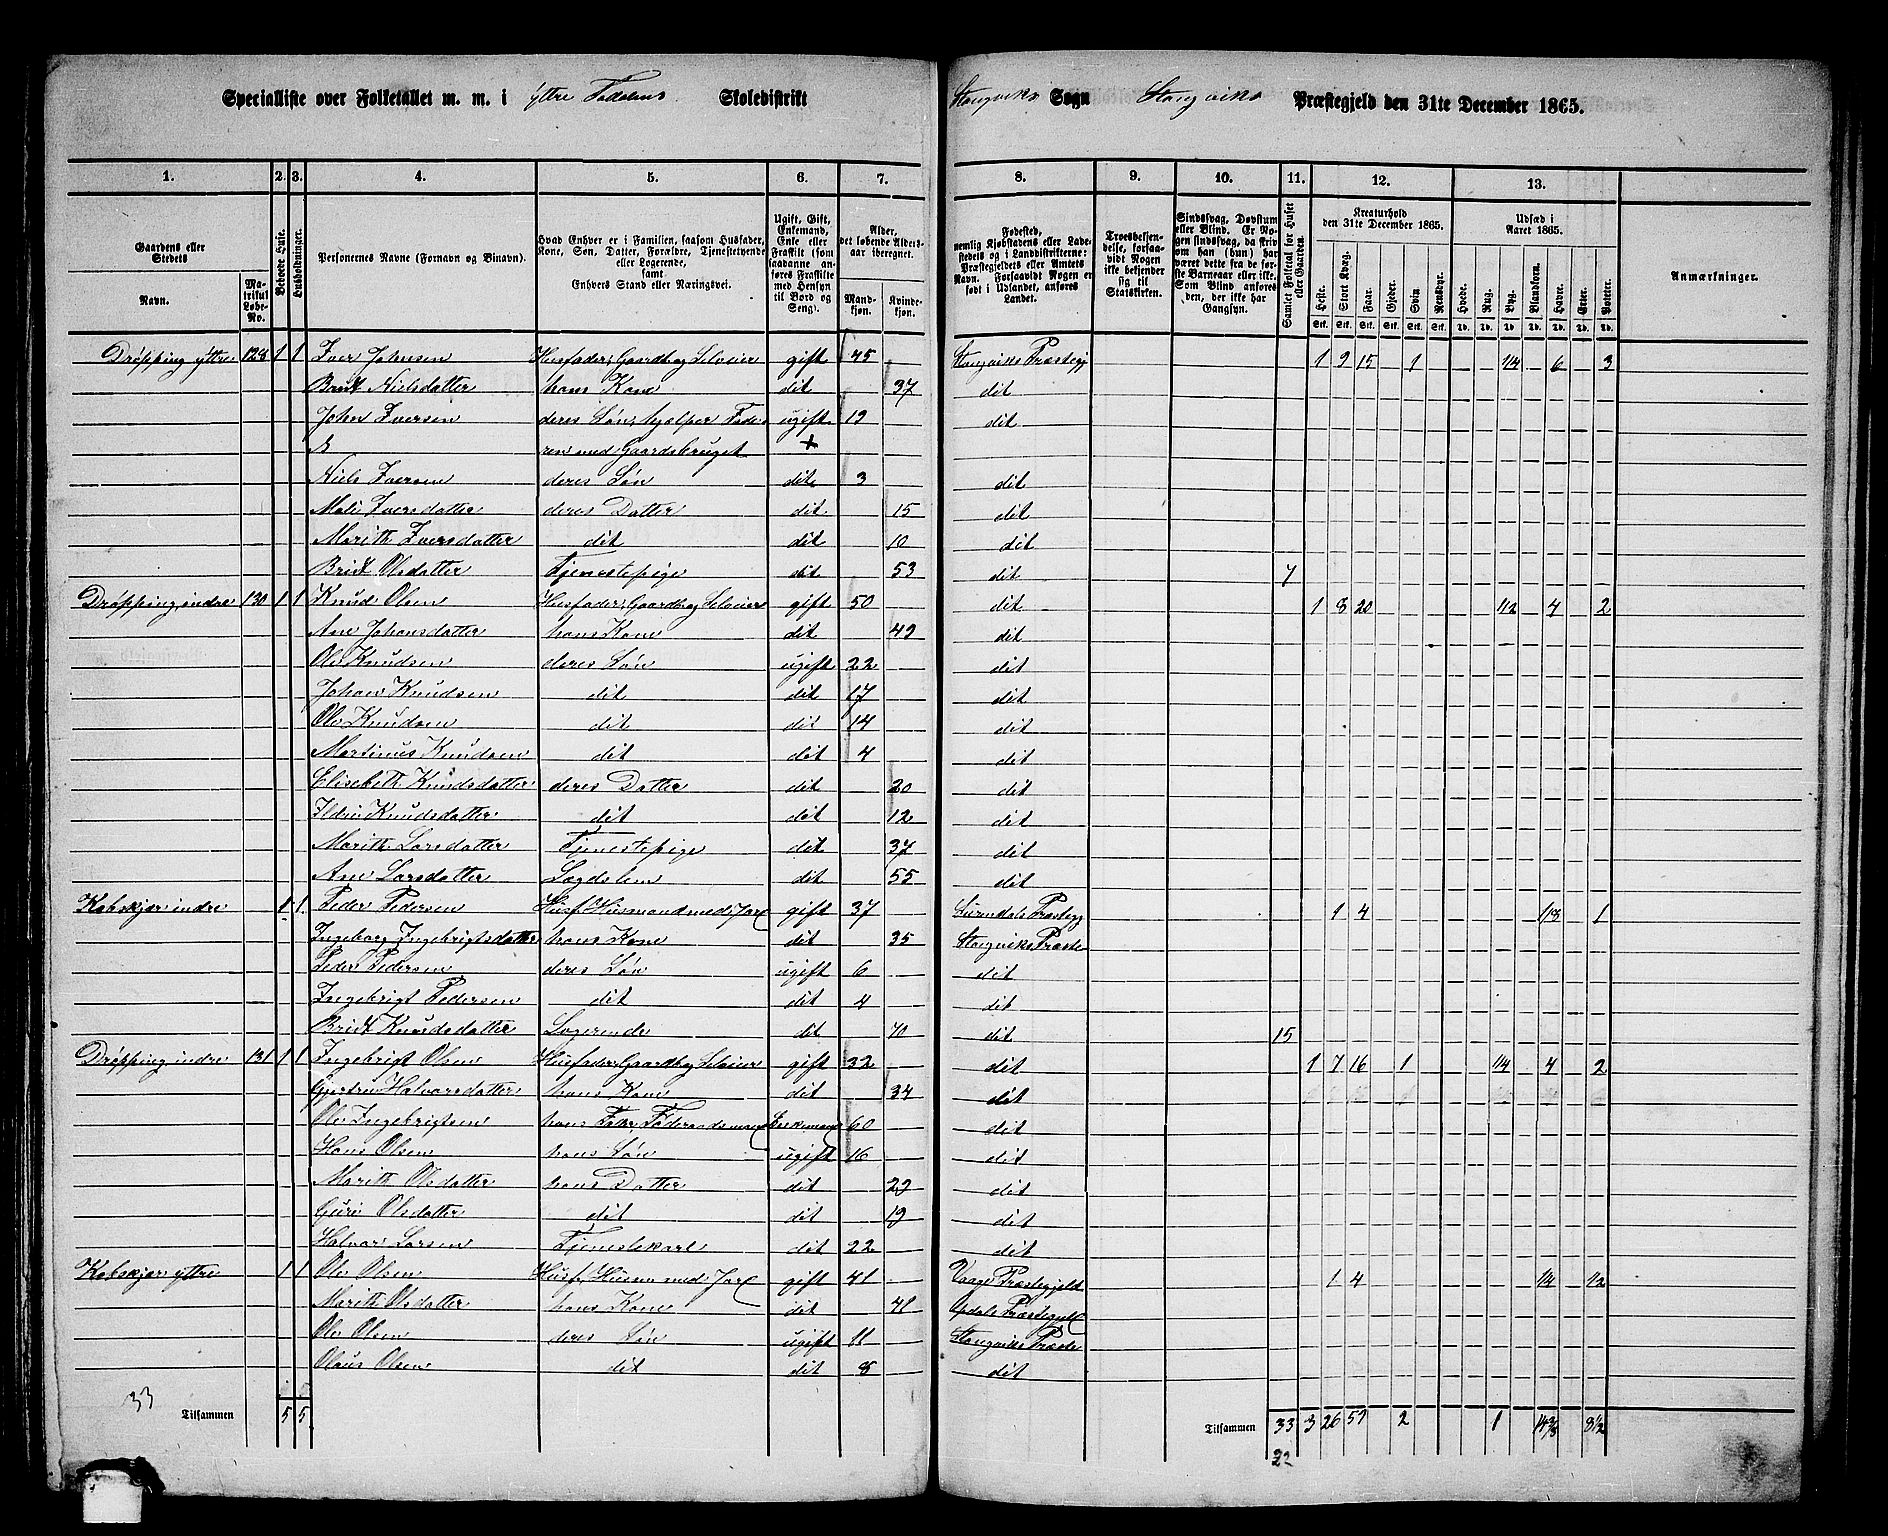 Specialliste over Folketallet m. m. i Yttre Todalens Skoledistrikt Stangviks Sogn Stangviks Præstegjeld den 31te December 1865.
1. 2. 3. 4. 5. 6. 7. 8. 9. 10. 11. 12. 13.
Gaardens eller Stedets
Navn.
Matrikul Løbe-No.
Beboede Huse.
Husholdninger.
Personernes Navne (Fornavn og Binavn).
Hvad Enhver er i Familien, saasom Husfader, Kone, Søn, Datter, Forældre, Tjenestetyende eller Logerende, samt Enhvers Stand eller Næringsvei.
Ugift, Gift, Enkemand, Enke eller Fraskilt (som saadanne anføres Fraskilte med Hensyn til Bord og Seng).
Alder, det løbende Alders-aar iberegnet.
Mandkjøn.
Kvindekjøn.
Fødested, nemlig Kjøbstadens eller Ladestedets og i Landdistrikterne: Præstegjeldets eller Amtets Navn. Forsaavidt Nogen er født i Udlandet, anføres Landet.
Troesbekjendelse, forsaavidt Nogen ikke bekjender sig til Statskirken.
Sindssvag, Døvstum eller Blind. Er Nogen sindssvag, da skriv om han (hun) har været dette fra de første Barneaar eller ikke. Som Blind anføres den, der ikke har Gangsyn.
Samlet Folketal for Huset eller Gaarden.
Kreaturhold den 31te December 1865.
Heste. Stort Kvæg. Faar. Gjeder. Svin. Rensdyr.
Stk. Stk. Stk. Stk. Stk. Stk.
Udsæd i Aaret 1865.
Hvede. Rug. Byg. Blandkorn. Havre. Erter. Poteter.
Td. Td. Td. Td. Td. Td. Td.
Anmærkninger.
Drøpping yttre 128 1 1 Iver Johnsen Husfader, Gaardb. og Selveier gift 45 Stangviks Præstegj 1 9 15 1 1/4 6 3
Brit Nielsdatter hans Kone dit 37 dit
John Iversen deres Søn, hjælper Fade- ugift 19 dit
ren med Gaardsbruget +
Niels Iversen deres Søn dit 3 dit
Mali Iversdatter deres Datter dit 15 dit
Marith Iversdatter dit dit 10 dit
Brit Olsdatter Tjenestepige dit 53 dit 7
Drøpping, indre 130 1 1 Knud Olsen Husfader, Gaardb. og Selveier gift 50 dit 1 8 20 1/2 4 2
Ane Johansdatter hans Kone dit 49 dit
Ole Knudsen deres Søn ugift 22 dit
Johan Knudsen dit dit 17 dit
Ole Knudsen dit dit 14 dit
Martinus Knudsen dit dit 4 dit
Elisebeth Knudsdatter deres Datter dit 20 dit
Ildri Knudsdatter dit dit 12 dit
Marith Larsdatter Tjenestepige dit 37 dit
Ane Larsdatter Lægdslem dit 55 dit
Kabskjær indre 1 1 Peder Pedersen Husf. Husmand med Jord gift 37 Surendals Præstegj 1 4 1/3 1
Ingeborg Ingebrigtsdatter hans Kone dit 35 Stangviks Præste
Peder Pedersen deres Søn ugift 6 dit
Ingebrigt Pedersen dit dit 4 dit
Brit Knudsdatter Logerende dit 70 dit 15
Drøpping indre 131 1 1 Ingebrigt Olsen Husfader, Gaardb. og Selveier gift 32 dit 1 7 16 1 1/4 4 2
Gjertru Halvarsdatter hans Kone dit 34 dit
Ole Ingebrigtsen hans Fader, Føderaadsmand Enkemand 60 dit
Hans Olsen hans Søn ugift 16 dit
Marith Olsdatter hans Datter dit 29 dit
Guri Olsdatter dit dit 19 dit
Halvar Larsen Tjenestekarl dit 22 dit
Kabskjær yttre 1 1 Ole Olsen Husf, Husm. med Jord gift 41 Vaage Præstegjeld 1 4 1/4 1/2
Marith Olsdatter hans Kone dit 41 Opdals Præstegjeld
Ole Olsen deres Søn ugift 11 Stangviks Præste
Olaus Olsen dit dit 8 dit
33
Tilsammen 5 5 Tilsammen 33 3 26 59 2 1 14 8 1/2